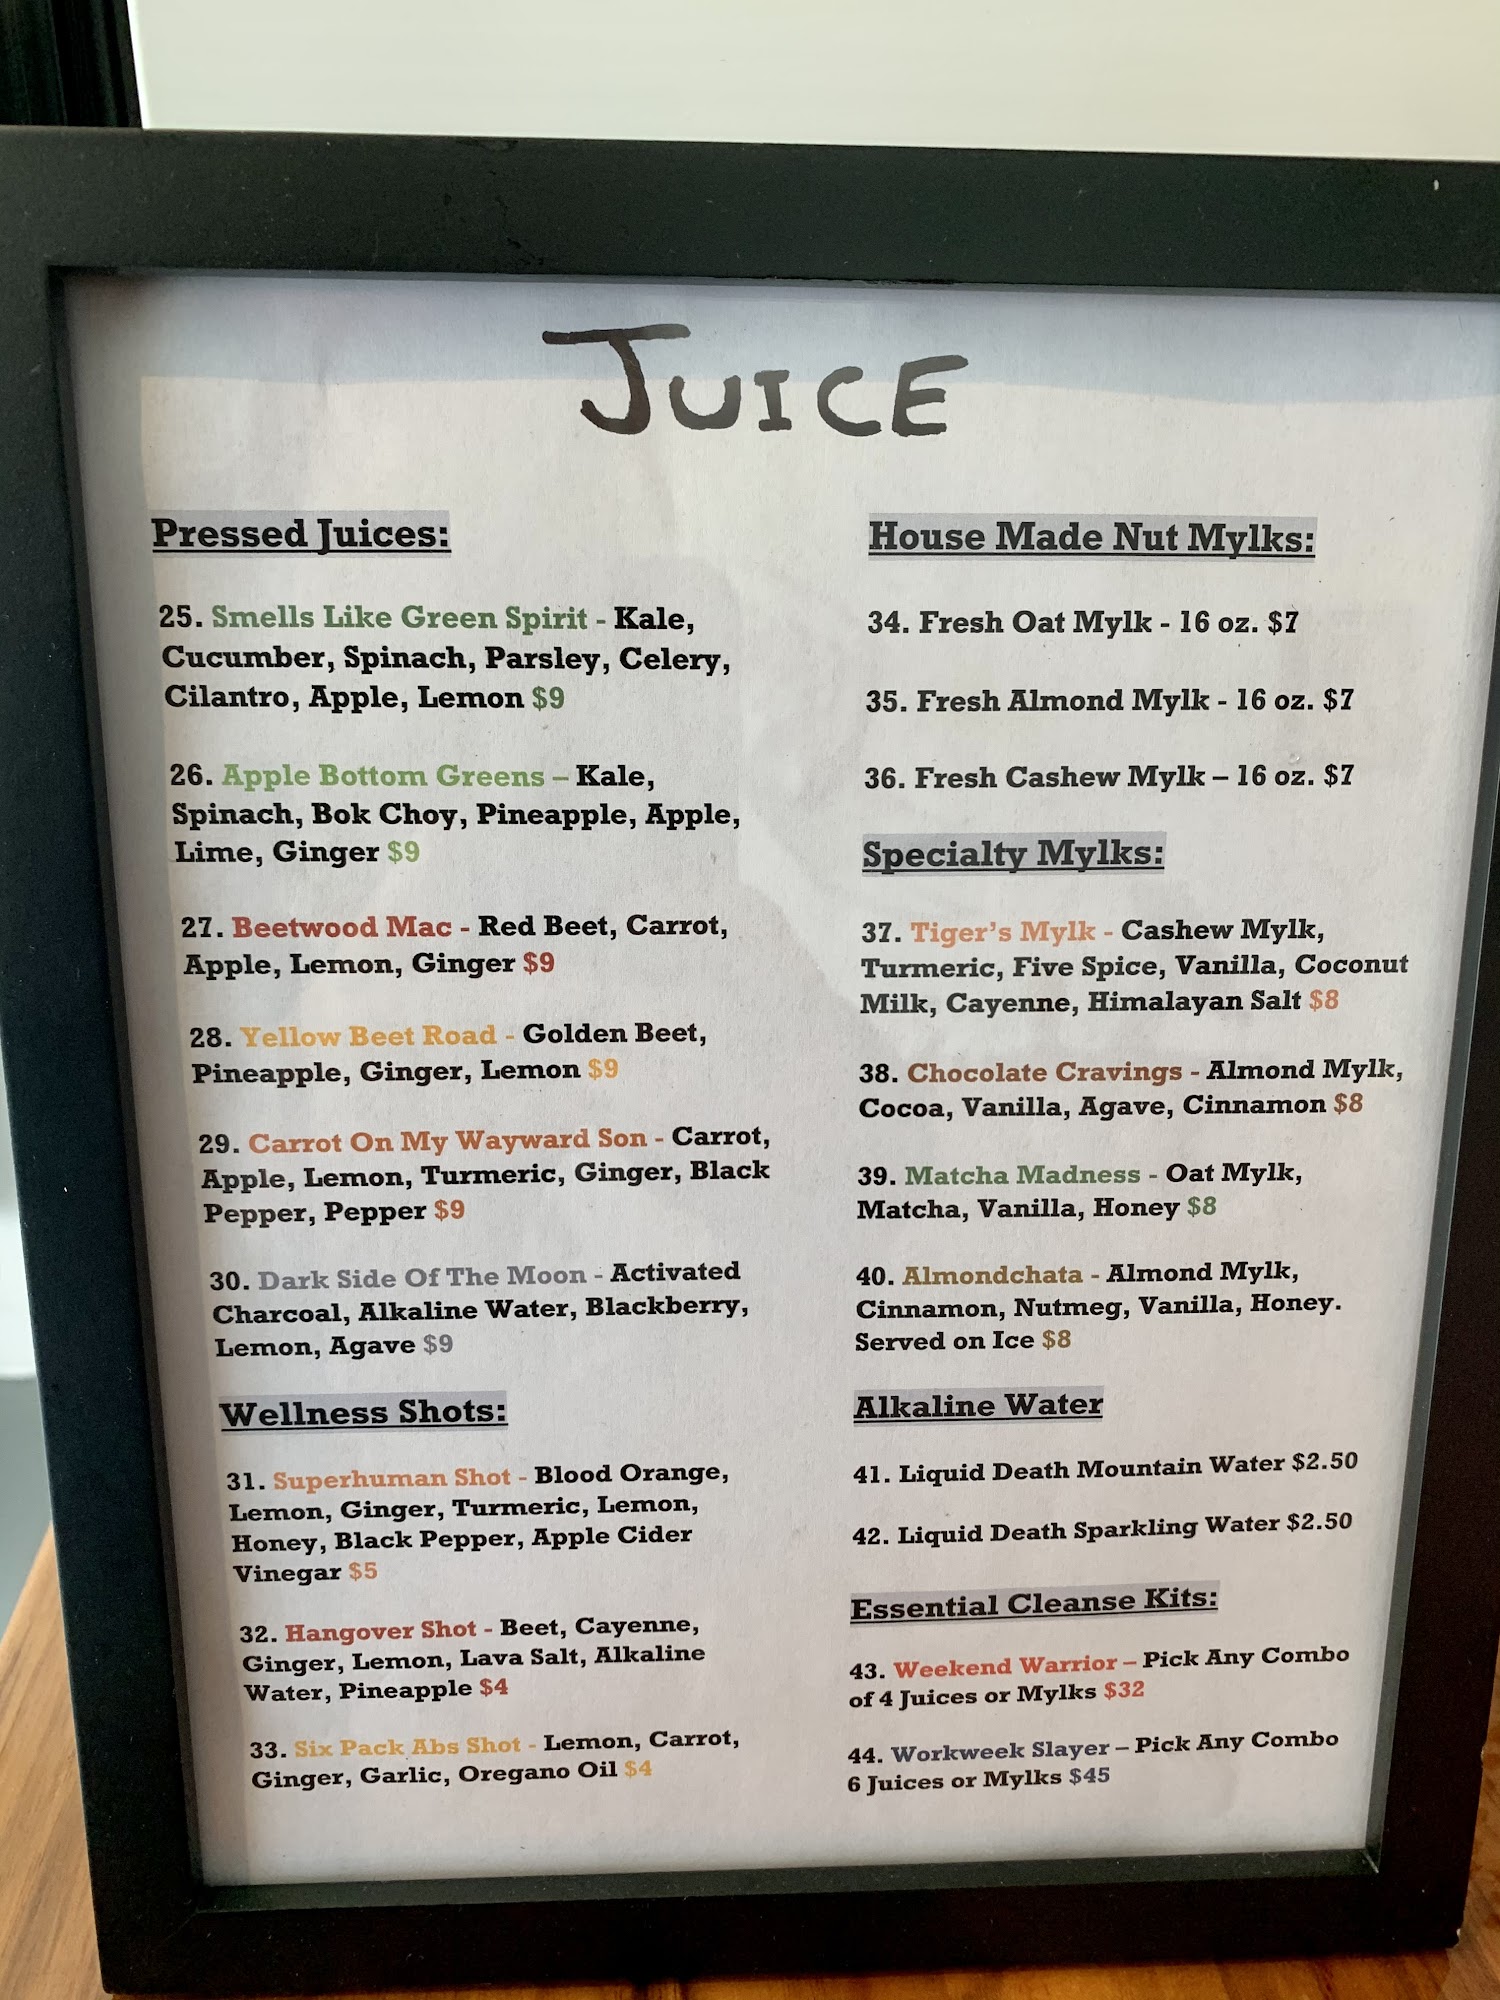 JUICE
Pressed Juices:
25. Smells Like Green Spirit - Kale,
Cucumber, Spinach, Parsley, Celery,
Cilantro, Apple, Lemon $9
26. Apple Bottom Greens – Kale,
Spinach, Bok Choy, Pineapple, Apple,
Lime, Ginger $9
27. Beetwood Mac - Red Beet, Carrot,
Apple, Lemon, Ginger $9
28. Yellow Beet Road - Golden Beet,
Pineapple, Ginger, Lemon $9
29. Carrot On My Wayward Son - Carrot,
Apple, Lemon, Turmeric, Ginger, Black
Pepper, Pepper $9
30. Dark Side Of The Moon - Activated
Charcoal, Alkaline Water, Blackberry,
Lemon, Agave $9
Wellness Shots:
31. Superhuman Shot - Blood Orange,
Lemon, Ginger, Turmeric, Lemon,
Honey, Black Pepper, Apple Cider
Vinegar $5
32. Hangover Shot - Beet, Cayenne,
Ginger, Lemon, Lava Salt, Alkaline
Water, Pineapple $4
33. Six Pack Abs Shot - Lemon, Carrot,
Ginger, Garlic, Oregano Oil $4
House Made Nut Mylks:
34. Fresh Oat Mylk - 16 oz. $7
35. Fresh Almond Mylk - 16 oz. $7
36. Fresh Cashew Mylk – 16 oz. $7
Specialty Mylks:
37. Tiger's Mylk - Cashew Mylk,
Turmeric, Five Spice, Vanilla, Coconut
Milk, Cayenne, Himalayan Salt $8
38. Chocolate Cravings - Almond Mylk,
Cocoa, Vanilla, Agave, Cinnamon $8
39. Matcha Madness - Oat Mylk,
Matcha, Vanilla, Honey $8
40. Almondchata - Almond Mylk,
Cinnamon, Nutmeg, Vanilla, Honey.
Served on Ice $8
Alkaline Water
41. Liquid Death Mountain Water $2.50
42. Liquid Death Sparkling Water $2.50
Essential Cleanse Kits:
43. Weekend Warrior – Pick Any Combo
of 4 Juices or Mylks $32
44. Workweek Slayer – Pick Any Combo
6 Juices or Mylks $45